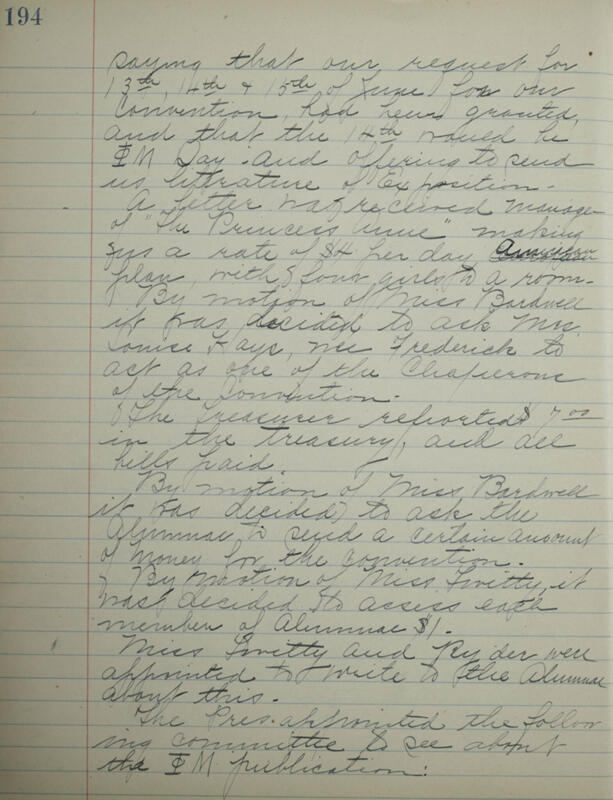 194
saying that our request for
13th, 14th & 15th of June for our
Convention, had been granted,
and that the 14th would be
ΦM Day - and offering to send
us literature of Exposition.
A letter was received Manager
of "The Princess Anne" making
us a rate of $4 per day American
plan, with four girls to a room.
By motion of Miss Bardwell
it was decided to ask Mrs.
Louise Hays, nee Frederick to
act as one of the Chaperons
of the Convention.
The Treasurer reported $7.00
in the treasury, and all
bills paid.
By motion of Miss Bardwell
it was decided to ask the
Alumnae to send a certain amount
of money for the convention.
By motion of Miss Twitty, it
was decided to assess each
member of Alumnae $1.
Miss Twitty and Ryder were
appointed to write to the Alumnae
about this.
The Pres. appointed the follow
ing committee to see about
the ΦM publication: